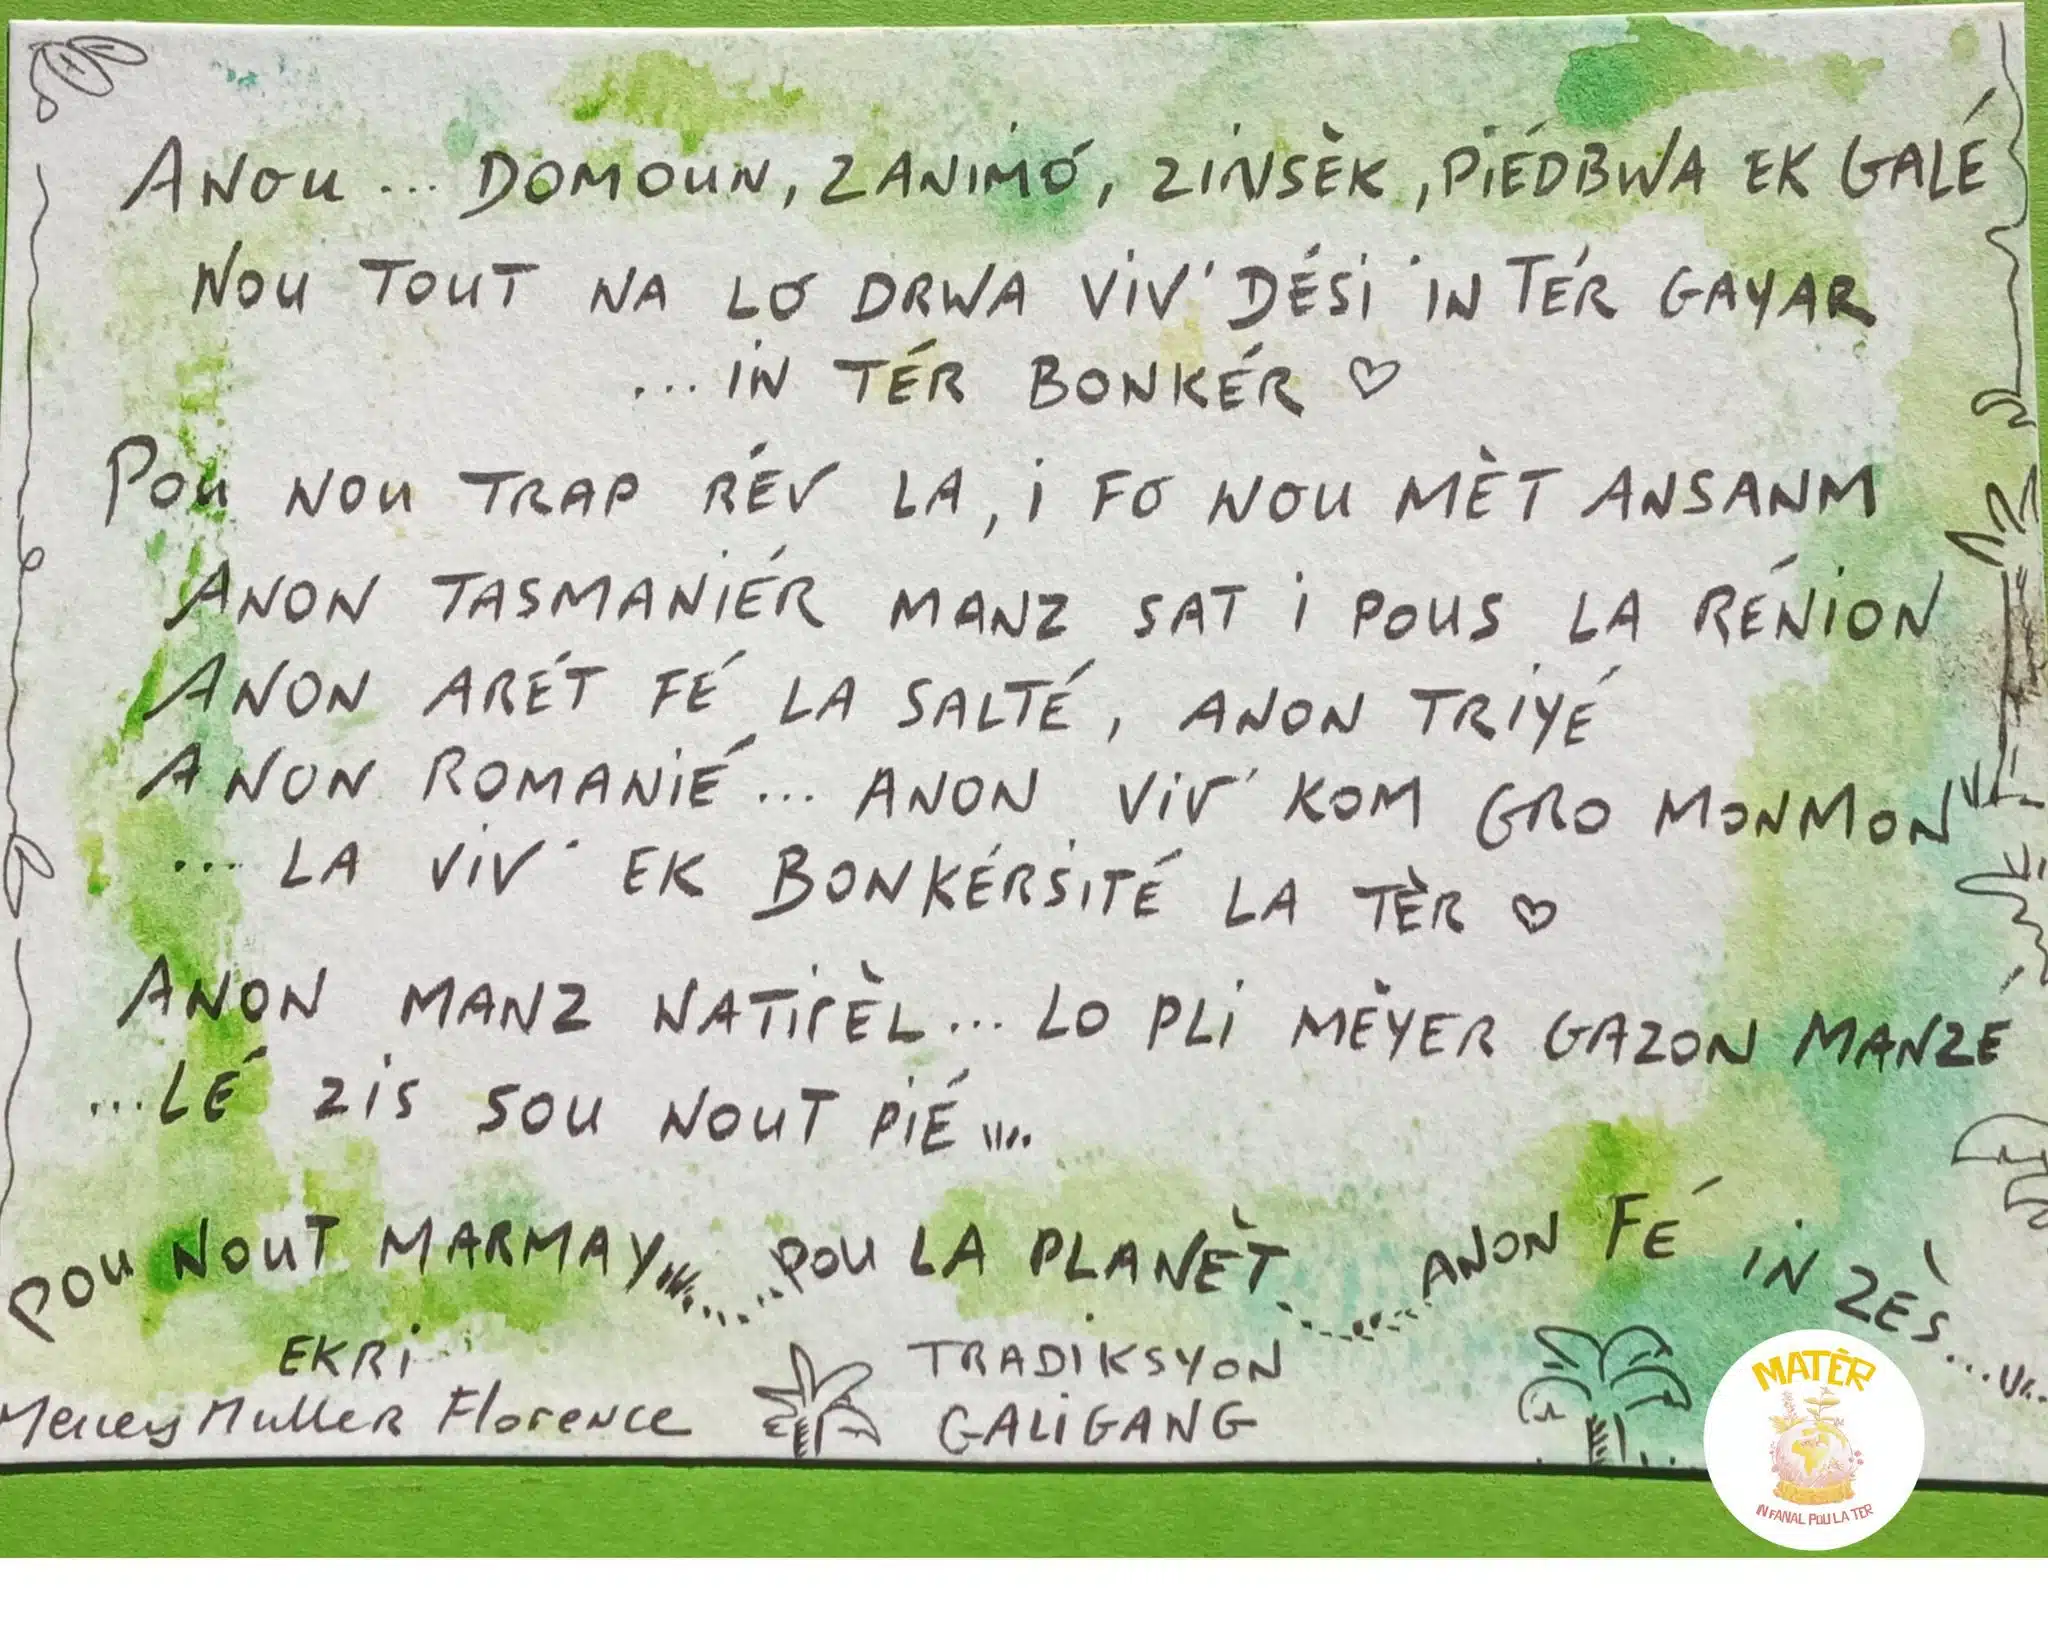 ANOU... DOMOUN, ZANIMÓ, ZINSÈK, PIÉDBWA EK GALÉ
NOU TOUT NA LO DRWA VIV' DÉSI IN TÉR GAYAR
...IN TÉR BONKÉR ♡
POU NOU TRAP RÉV LA, I FO NOU MÈT ANSANM
ANON TASMANIÉR MANZ SAT I POUS LA RÉNION
ANON ARÉT FÉ LA SALTÉ, ANON TRIYÉ
ANON ROMANIÉ... ANON VIV' KOM GRO MONMON
... LA VIV' EK BONKÉRSITÉ LA TÈR ♡
ANON MANZ NATIRÈL... LO PLI MÈYER GAZON MANZÉ
...LÉ ZIS SOU NOUT PIÉ....
POU NOUT MARMAY........ POU LA PLANÈT........ ANON FÉ IN ZÈS......
EKRI
Muller Florence
TRADIKSYON
GALIGANG
MATÈR
IN FANAL POU LA TER